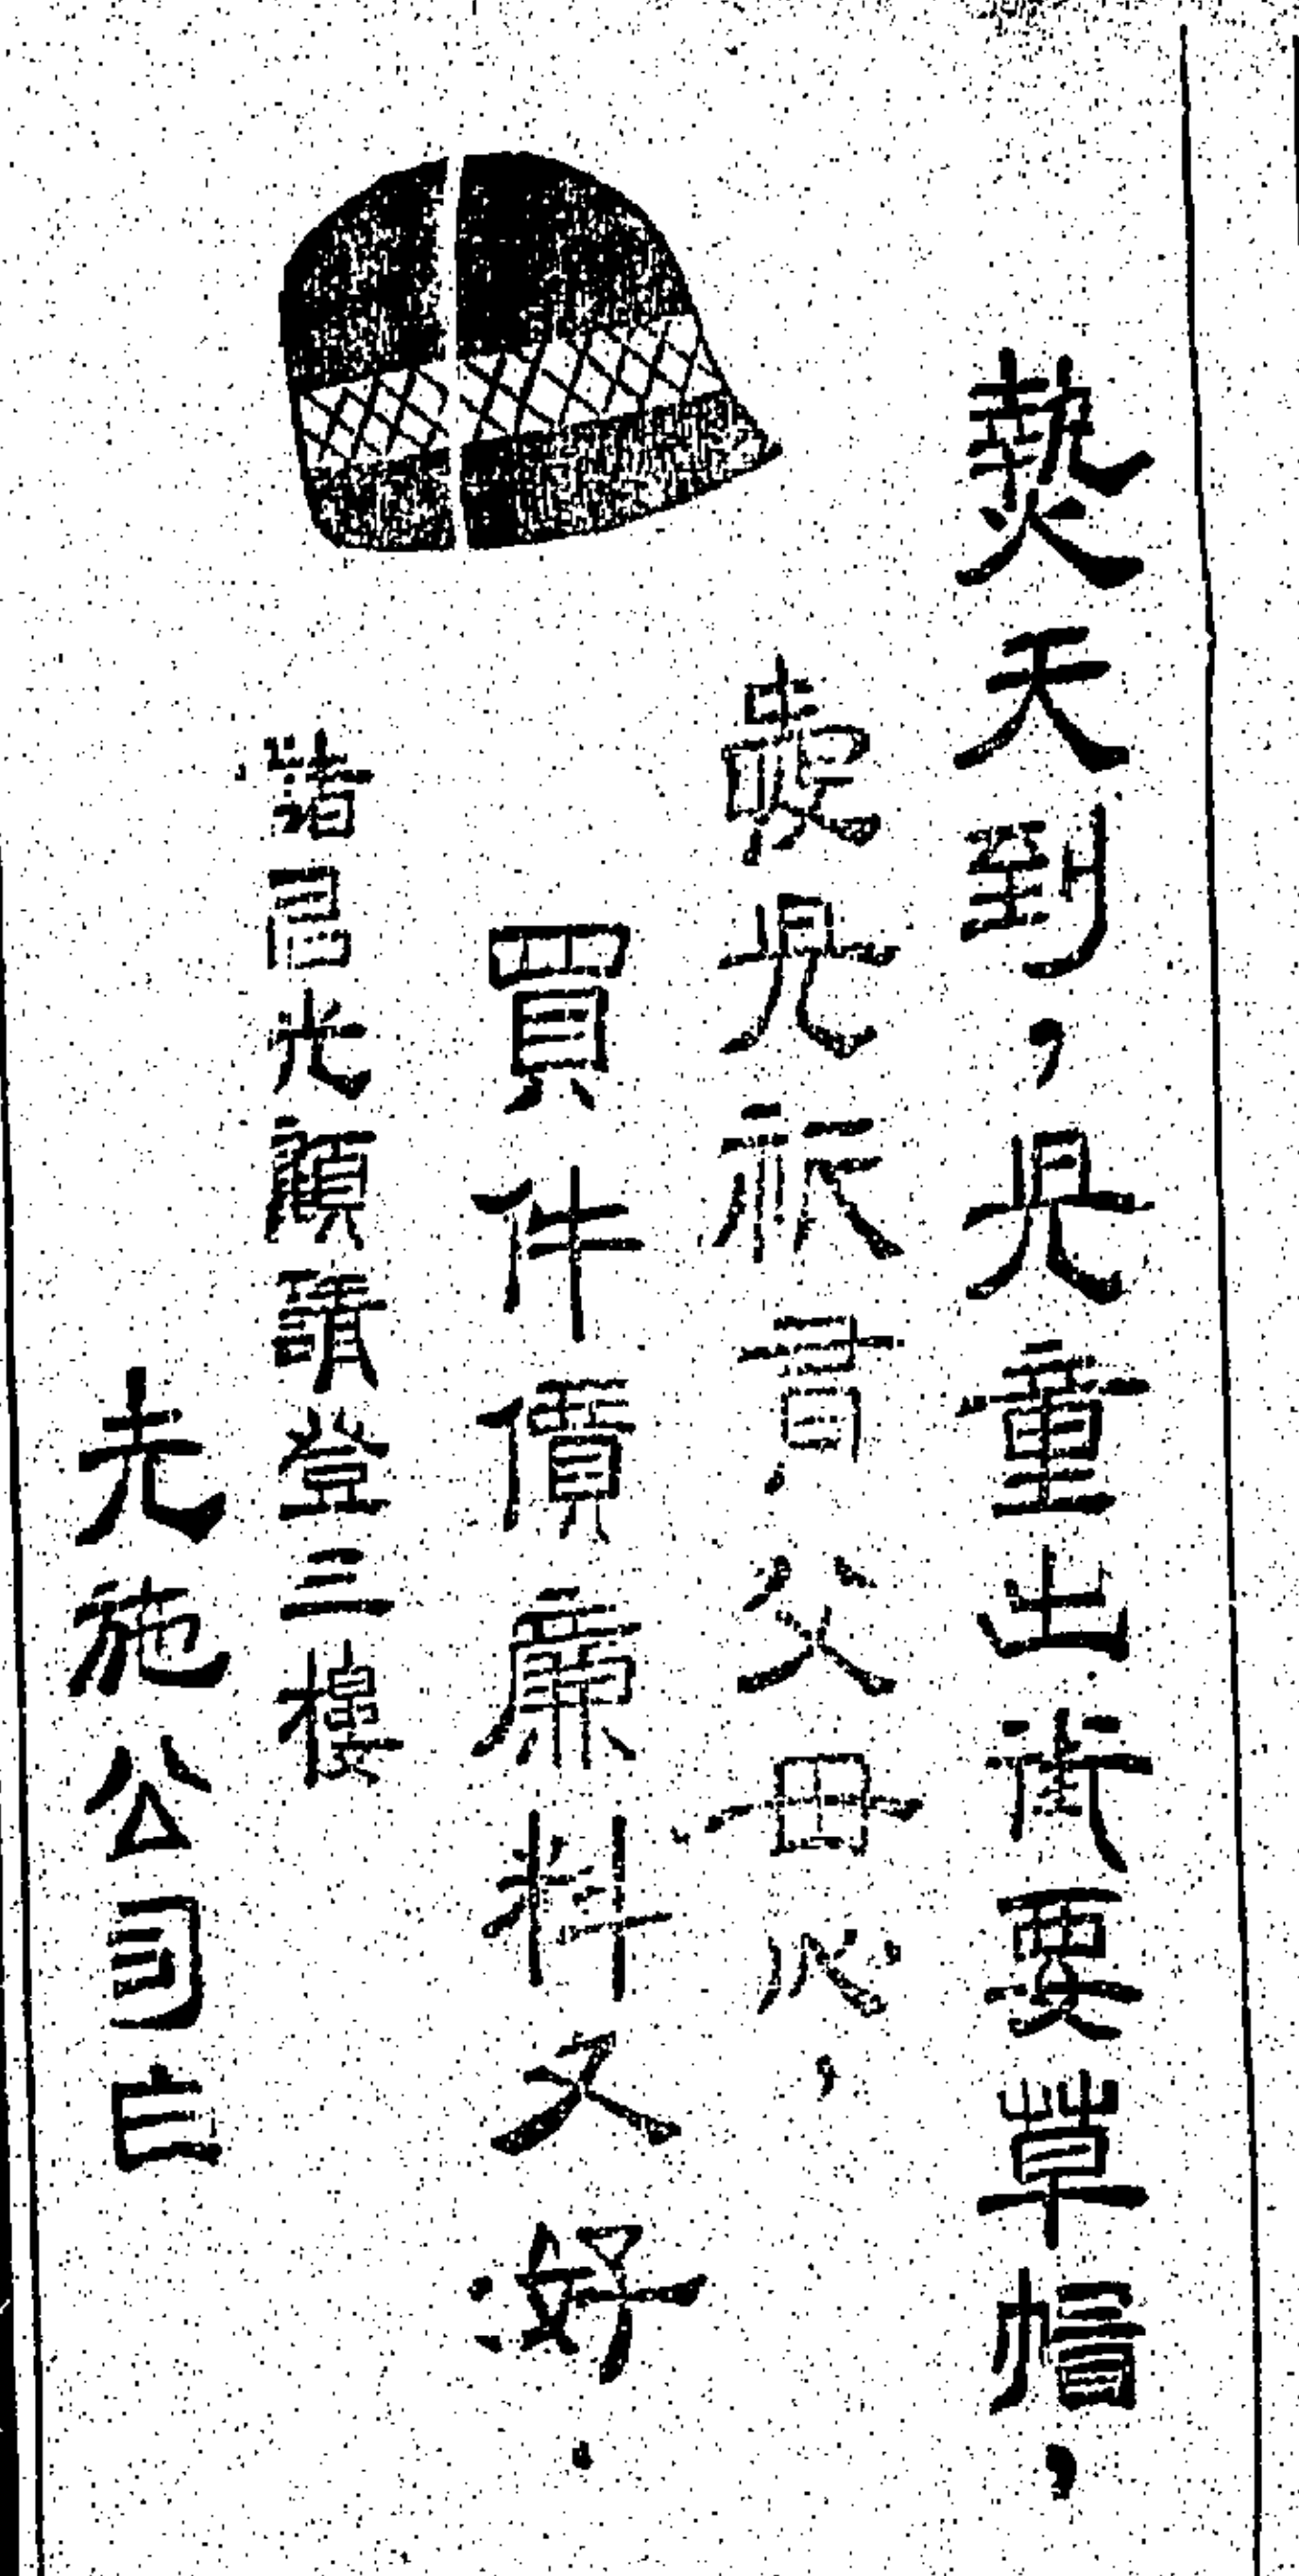 熱天到，兒童出街要草帽，
愛兒祇有父母心，
買件價廉料又好．
諸君光顧請登三樓
先施公司白